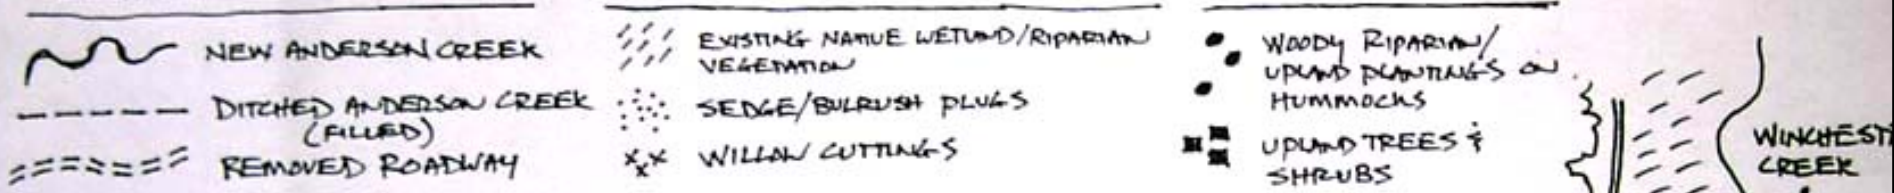 NEW ANDERSON CREEK
DITCHED ANDERSON CREEK
(FILLED)
REMOVED ROADWAY
EXISTING NATIVE WETLAND/RIPARIAN
VEGETATION
SEDGE/BULRUSH PLUGS
WILLOW CUTTINGS
WOODY RIPARIAN/
UPLAND PLANTINGS ON
HUMMOCKS
UPLAND TREES &
SHRUBS
CREEK